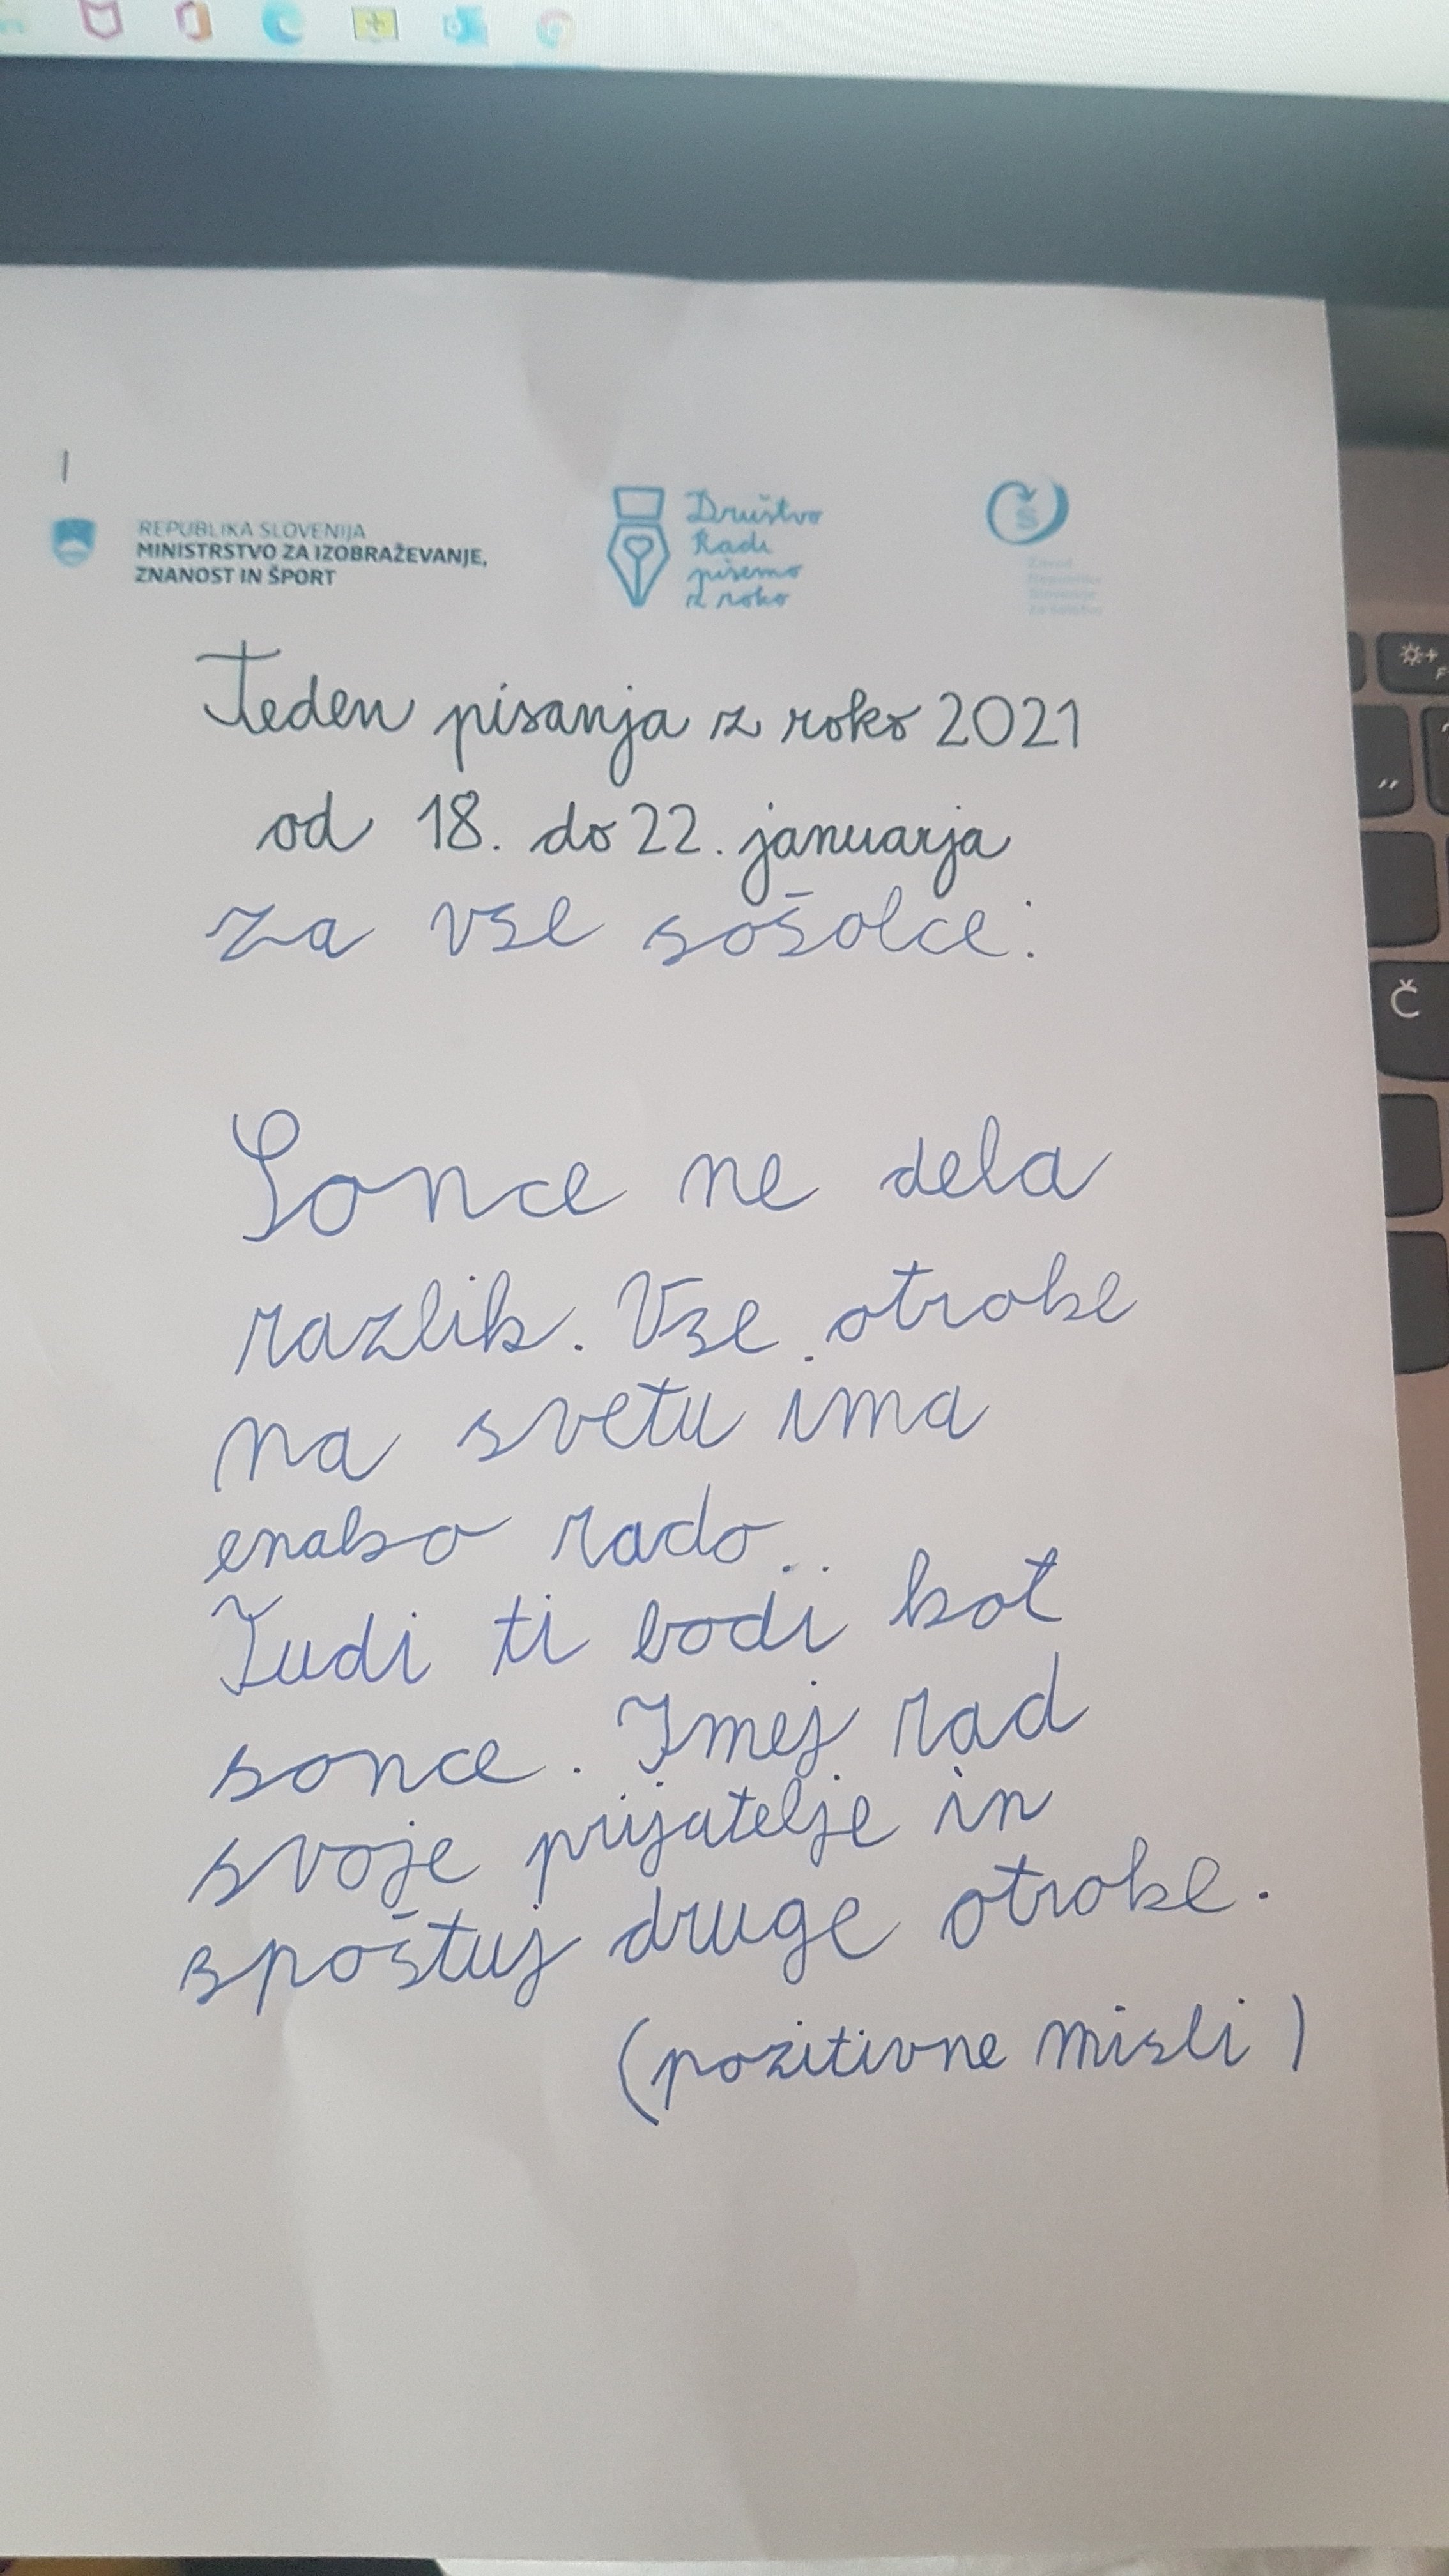 REPUBLIKA SLOVENIJA
MINISTRSTVO ZA IZOBRAŽEVANJE,
ZNANOST IN ŠPORT
Društvo
Radi
pišemo
z roko
Š
Zavod
Republike
Slovenije
za šolstvo
Teden pisanja z roko 2021
od 18. do 22. januarja
za vse sošolce:
Sonce ne dela
razlik. Vse otroke
na svetu ima
enako rado.
Tudi ti bodi kot
sonce. Imej rad
svoje prijatelje in
spoštuj druge otroke.
(pozitivne misli)
Č